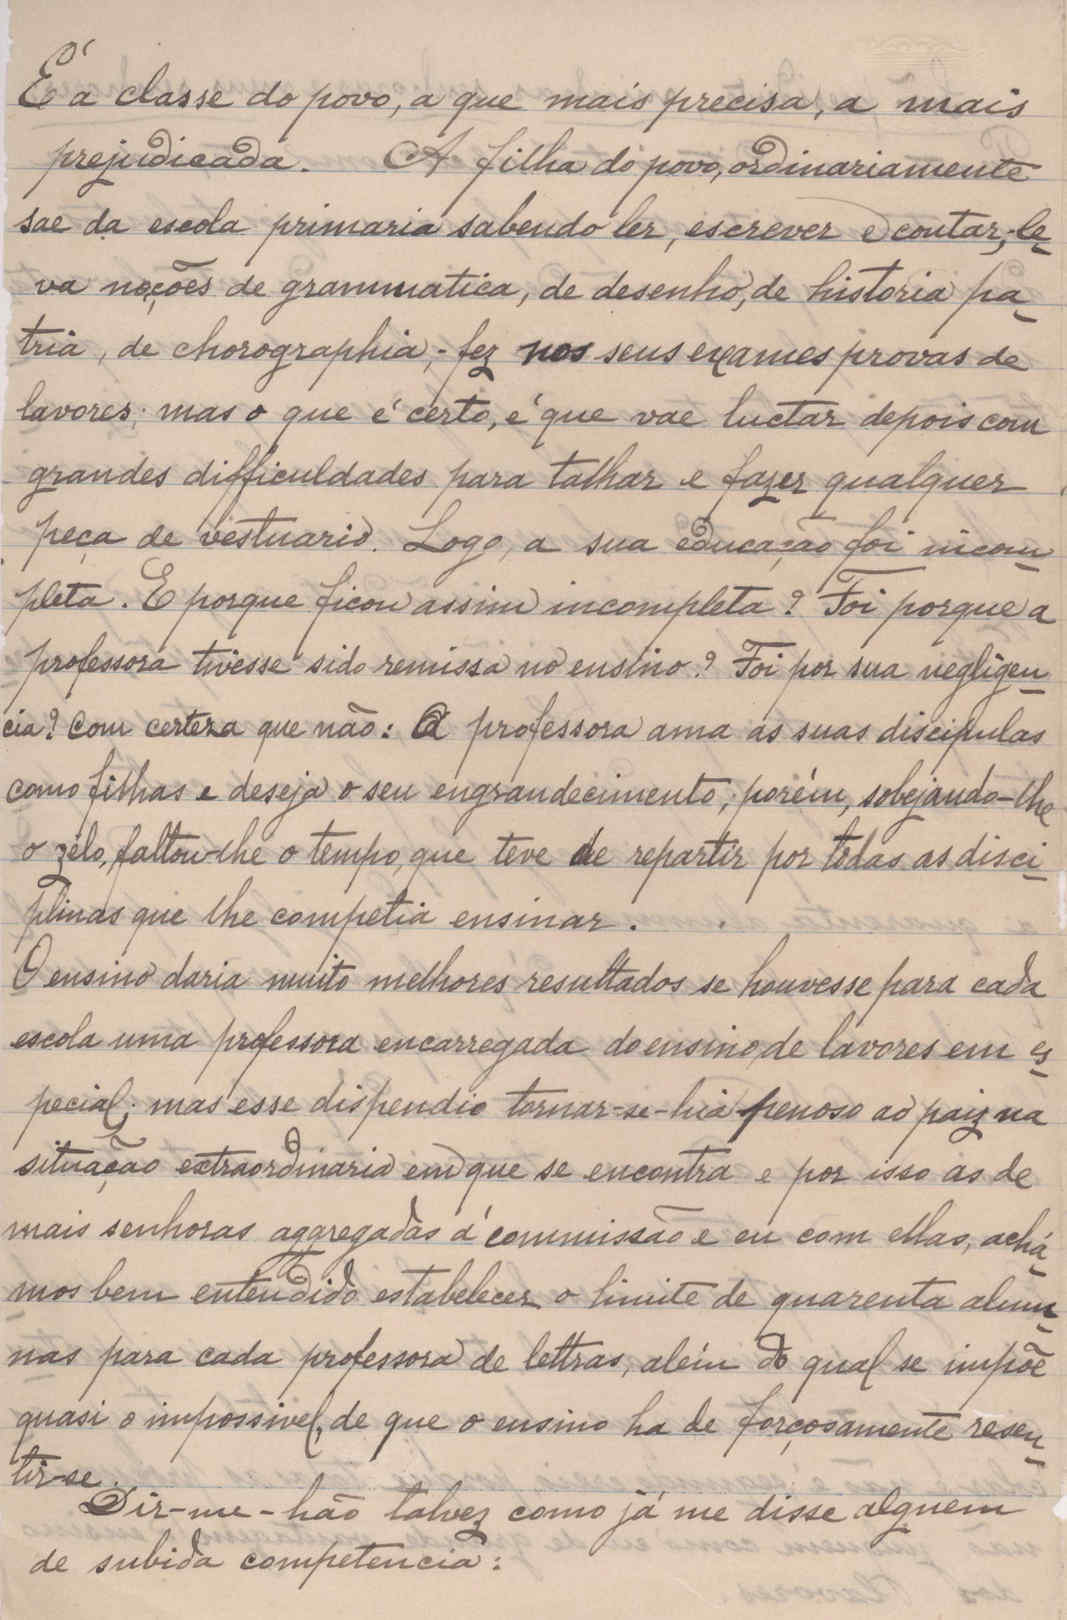 É a classe do povo, a que mais precisa, a mais
prejudicada. A filha do povo, ordinariamente
sae da escola primaria sabendo ler, escrever e contar,-le-
va noções de grammatica, de desenho, de historia pa-
tria, de chorographia,- fez nos seus exames provas de
lavores; mas o que é certo, é que vae luctar depois com
grandes difficuldades para talhar e fazer qualquer
peça de vestuario. Logo, a sua educação foi incom-
pleta. E porque ficou assim incompleta? Foi porque a
professora tivesse sido remissa no ensino? Foi por sua negligen-
cia? Com certeza que não: A professora ama as suas discipulas
como filhas e deseja o seu engrandecimento; porém, sobejando-lhe
o zêlo, faltou-lhe o tempo, que teve de repartir por todas as disci-
plinas que lhe competia ensinar.
O ensino daria muito melhores resultados se houvesse para cada
escola uma professora encarregada do ensino de lavores em es-
pecial; mas esse dispendio tornar-se-hia penoso ao paiz na
situação extraordinaria em que se encontra e por isso as de
mais senhoras aggregadas á commissão e eu com ellas, achá-
mos bem entendido estabelecer o limite de quarenta alum-
nas para cada professora de lettras, além do qual se impõe
quasi o impossivel, de que o ensino ha de forçosamente resen-
tir-se.
Dir-me-hão talvez como já me disse alguem
de subida competencia: